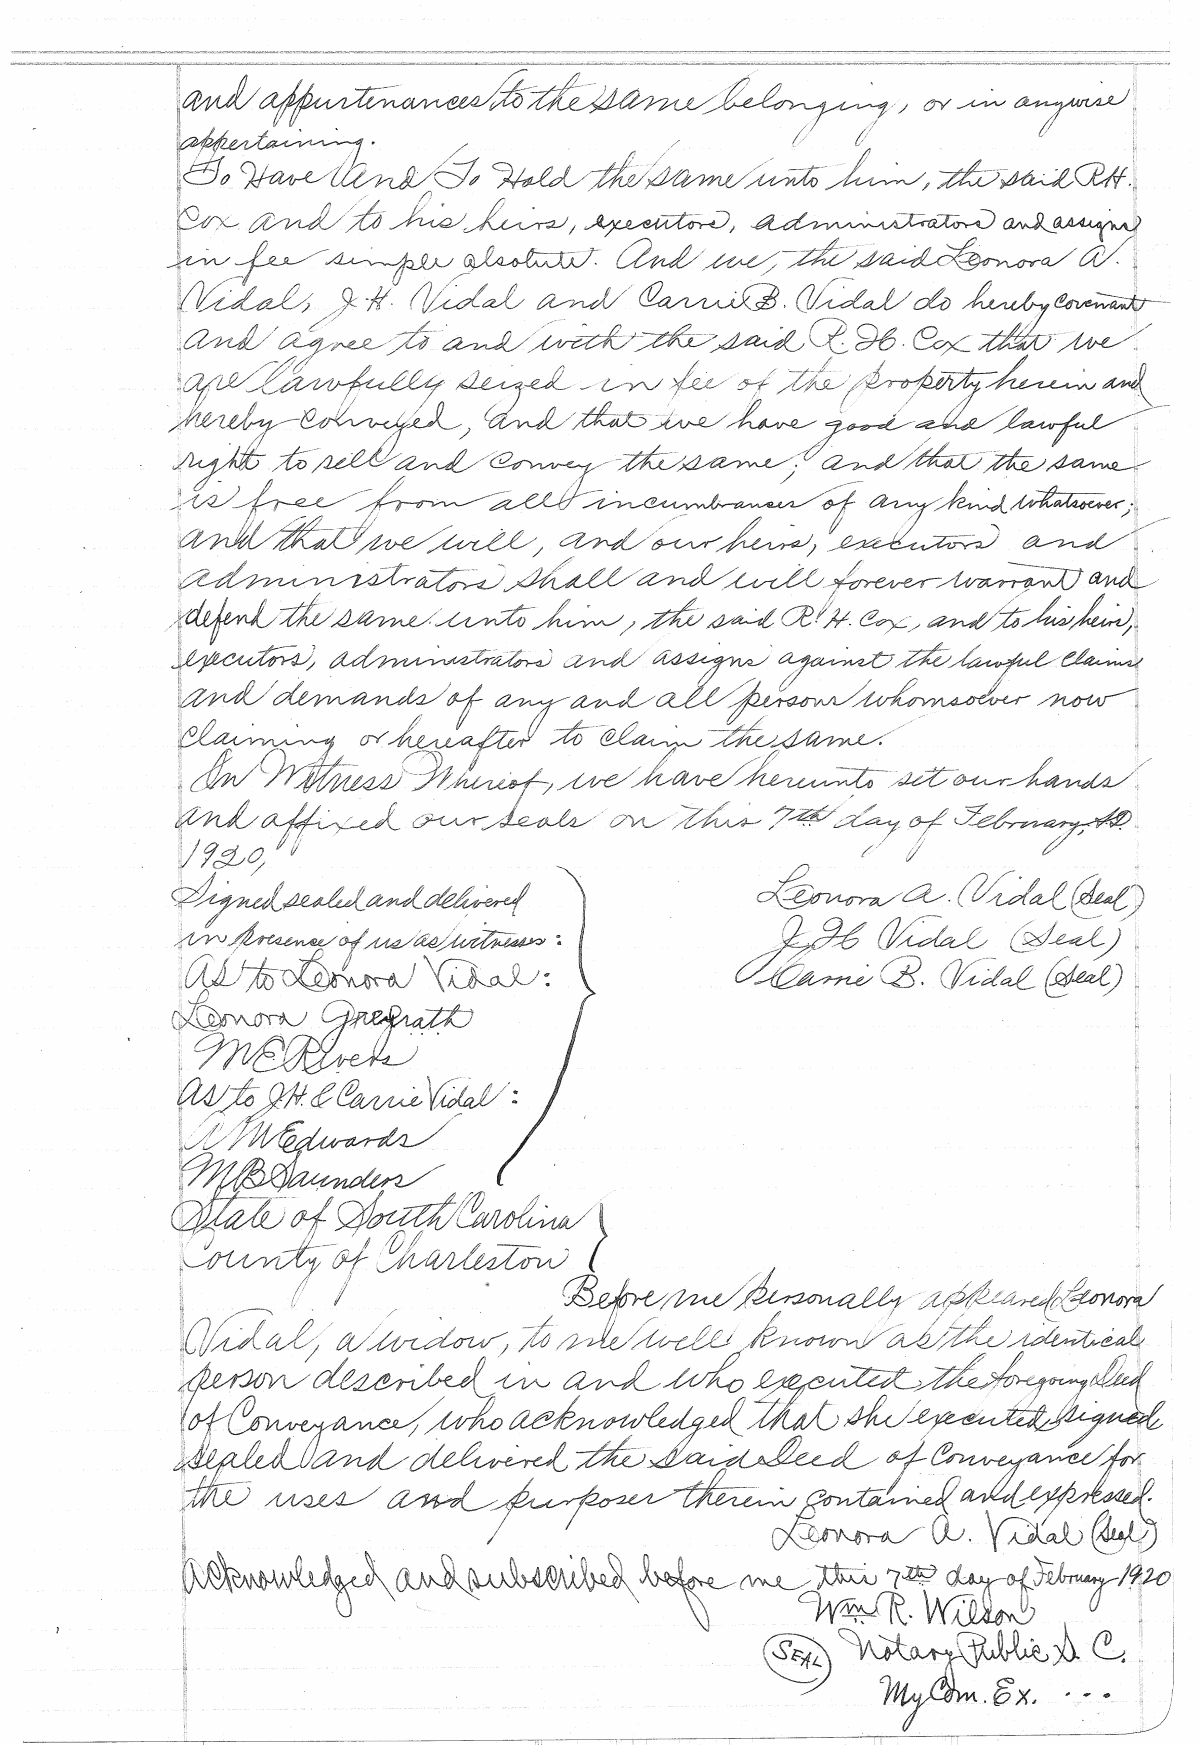 and appurtenances to the same belonging, or in anywise
appertaining.
To Have And To Hold the same unto him, the said R.H.
Cox and to his heirs, executors, administrators and assigns
in fee simple absolute. And we, the said Leonora A.
Vidal, J.H. Vidal and Carrie B. Vidal do hereby covenant
and agree to and with the said R. H. Cox that we
are lawfully seized in fee of the property herein and
hereby conveyed, and that we have good and lawful
right to sell and convey the same; and that the same
is free from all incumbrances of any kind whatsoever;
and that we will, and our heirs, executors and
administrators shall and will forever warrant and
defend the same unto him, the said R. H. Cox, and to his heirs,
executors, administrators and assigns against the lawful claims
and demands of any and all persons whomsoever now
claiming or hereafter to claim the same.
In Witness Whereof, we have hereunto set our hands
and affixed our seals on this 7th day of February, A.D.
1920,
Signed sealed and delivered
in presence of us as witnesses:
As to Leonora Vidal:
Leonora
M E Rivers
As to J.H. & Carrie Vidal:
A M Edwards
M B Saunders
Leonora A. Vidal (Seal)
J H Vidal (Seal)
Carrie B. Vidal (Seal)
State of South Carolina
County of Charleston
Before me personally appeared Leonora
Vidal, a widow, to me well known as the identical
person described in and who executed the foregoing Deed
of Conveyance, who acknowledged that she executed, signed
sealed and delivered the said Deed of Conveyance for
the uses and purposes therein contained and expressed.
Leonora A. Vidal (Seal)
Acknowledged and subscribed before me this 7th day of February 1920
Wm R. Wilson
SEAL Notary Public S. C.
My Com. Ex. ...